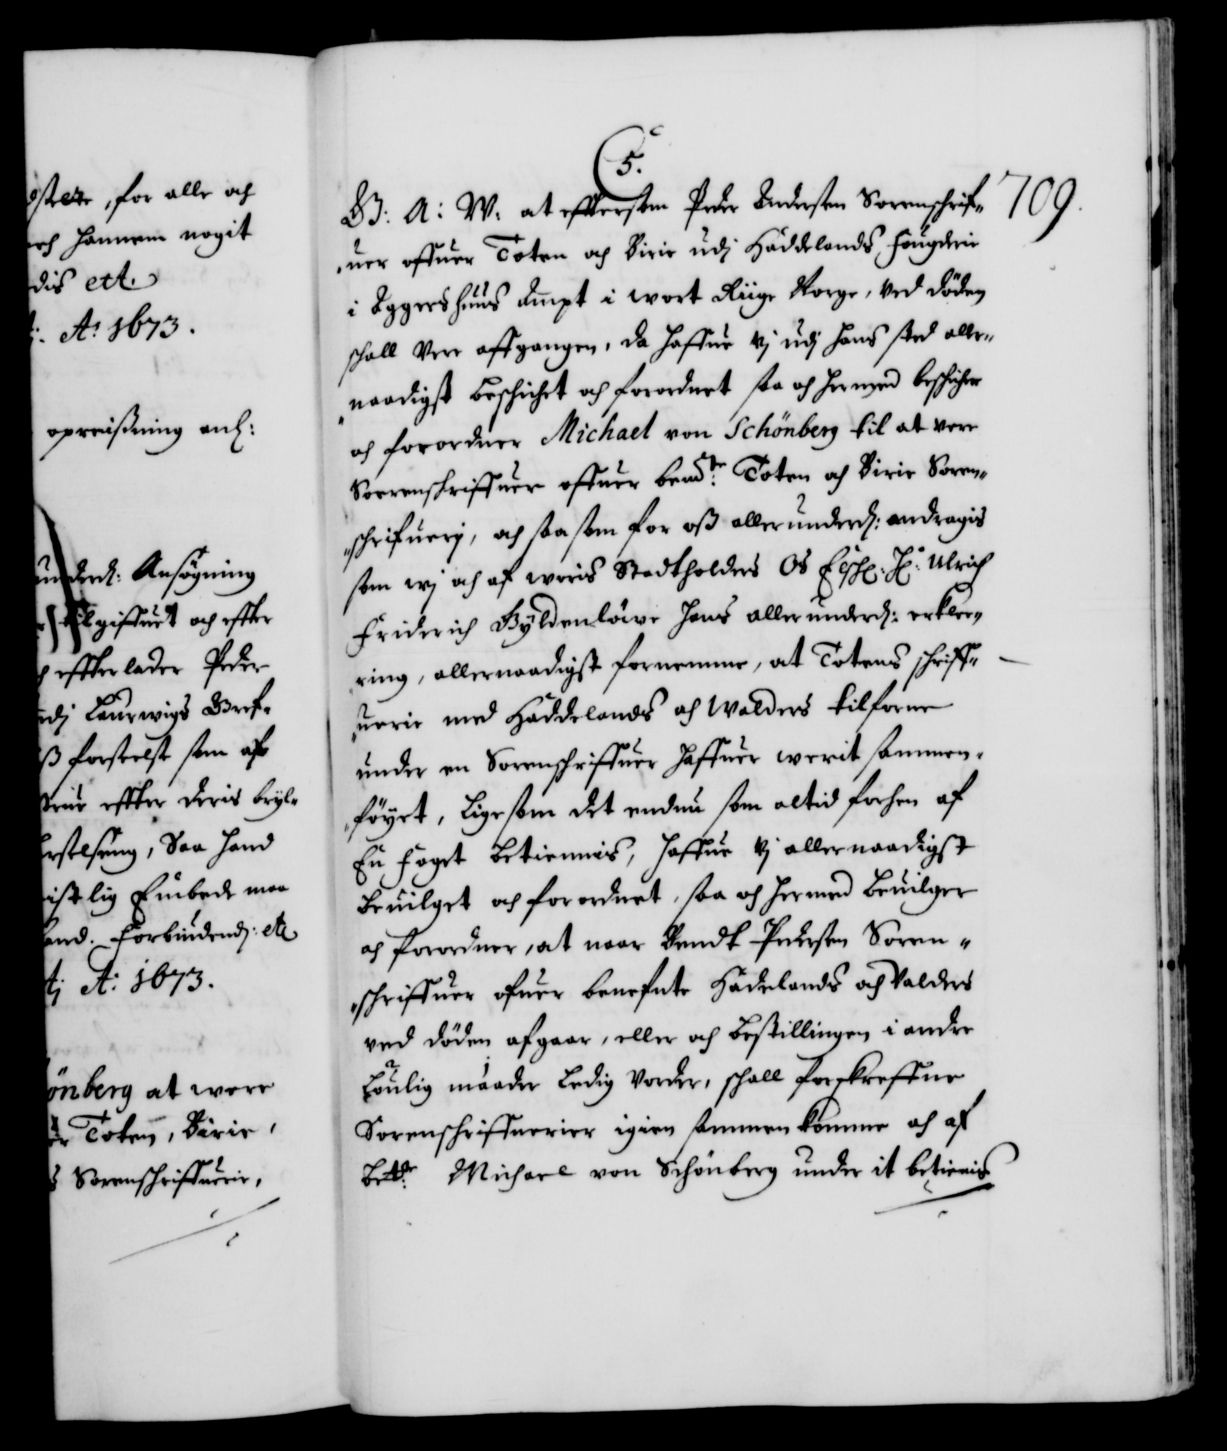 ostere, for alle och
och hannem nogit
dis ett.
A: 1673.
opreisning anl:
underd: Ansøgning
tilgiffuet och effter
effterlader Peder
udj Laurwigs Gref-
ß forseelse som af
effter deris bryl-
Saa hand
istlig Embede maa
land. Forbindend: etc
tj A: 1673.
önberg at were
Toten, Birie,
Sorenschriffuerie,
5.
709.
G: A: W: at eftersom Peder Andersen Sorenschrif-
uer offuer Toten och Birie udj Haddelands Fougderie
i Aggershuus Ampt i wort Riige Norge, ved döden
schall Vere affgangen, da haffue Vj udj hans sted aller-
naadigst Beschichet och forordnet saa och hermed beschicher
och forordner Michael von Schönberg til at vere
Sorrenskriffuer offuer bemte: Toten och Birie Soren-
schrifuerj, och saasom for oß allerunderd: andragis
som wj och af woris Stadtholders Os Elschel: Hr: Ulrich
Friderich Gyldenlöwe hans allerunderd: erkler-
ring, allernaadigst fornemme, at Totens schriff-
uerie med Haddelands och Walders tilforne
under en Sorenschriffuer haffuer werit sammen-
föyet, Ligesom det endnu som altid forhen af
En Foget betiennis, haffue Vj allernaadigst
Beuilget och forordnet, saa och hermed Beuilger
och forordner, at naar Bendt Pedersen Soren-
schriffuer ofuer benefnte Hadelands och Valders
ved döden afgaar, eller och Bestillingen i andre
Loulig maader Ledig Vorder, schall forskreffne
Sorenschriffuerier igien sammen komme och af
Bete: Michael von Schönberg under it betienis